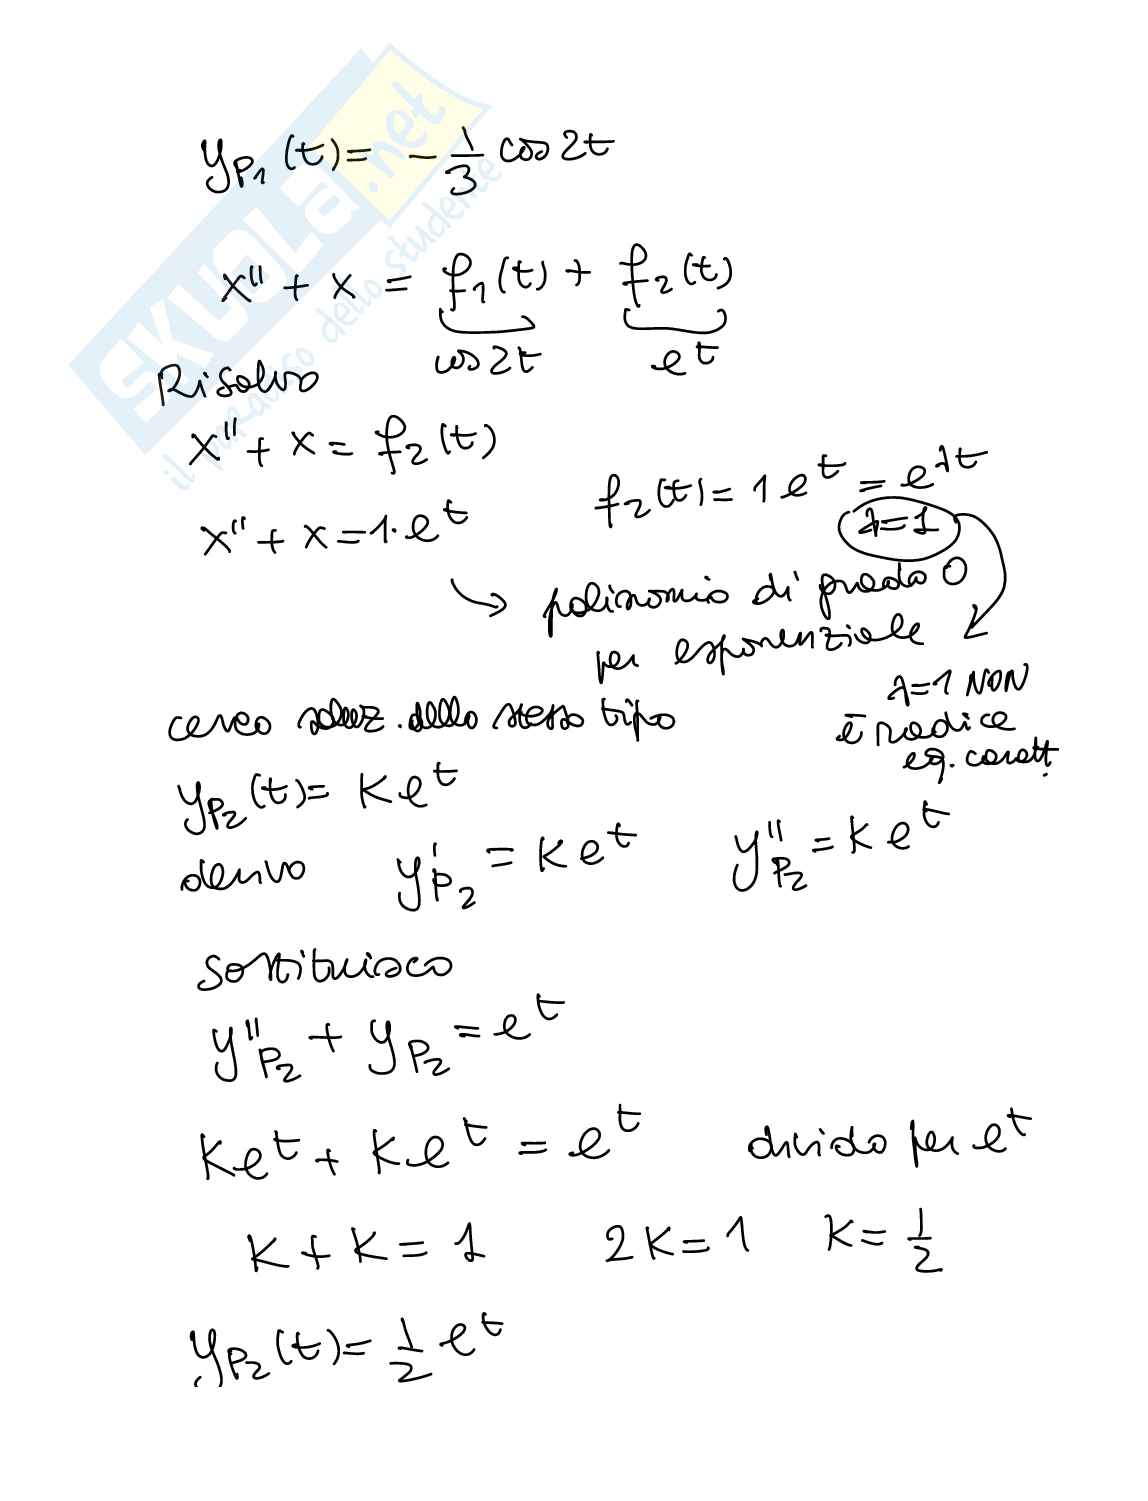 SKUOLA.net
il paradiso dello studente
y_{P_1}(t) = - \frac{1}{3} cos 2t
x'' + x = f_1(t) + f_2(t)
cos 2t e^t
Risolvo
x'' + x = f_2(t)
f_2(t) = 1 e^t = e^{λt}
x'' + x = 1 · e^t
λ = 1
→ polinomio di grado 0
per esponenziale
λ = 1 NON
è radice
eq. caratt.
cerco soluz. dello stesso tipo
y_{P_2}(t) = K e^t
derivo y'_{P_2} = K e^t y''_{P_2} = K e^t
sostituisco
y''_{P_2} + y_{P_2} = e^t
K e^t + K e^t = e^t divido per e^t
K + K = 1 2K = 1 K = \frac{1}{2}
y_{P_2}(t) = \frac{1}{2} e^t